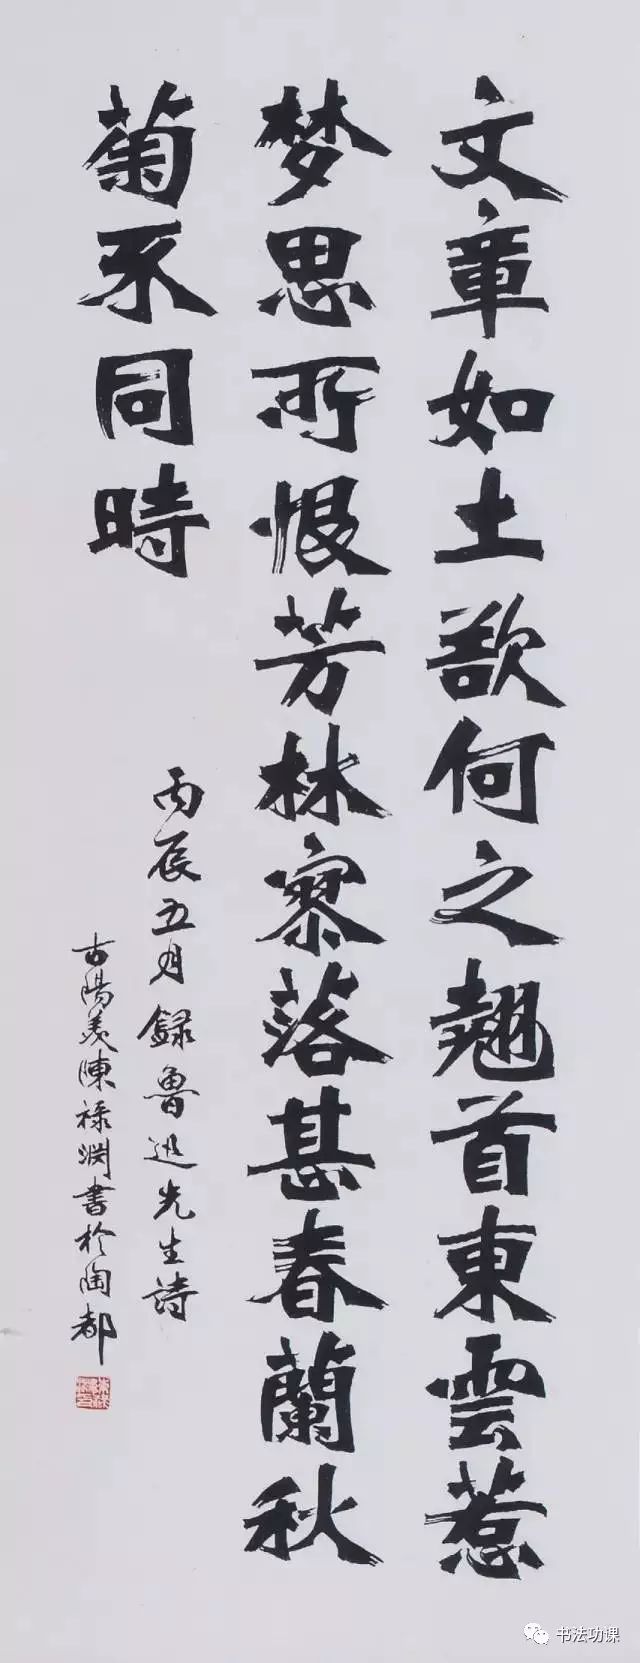 文章如土欲何之翹首東雲惹
梦思所恨芳林寥落甚春蘭秋
菊不同時
丙辰五月録魯迅先生詩
古陽羨陳禄渊書於陶都
书法功课